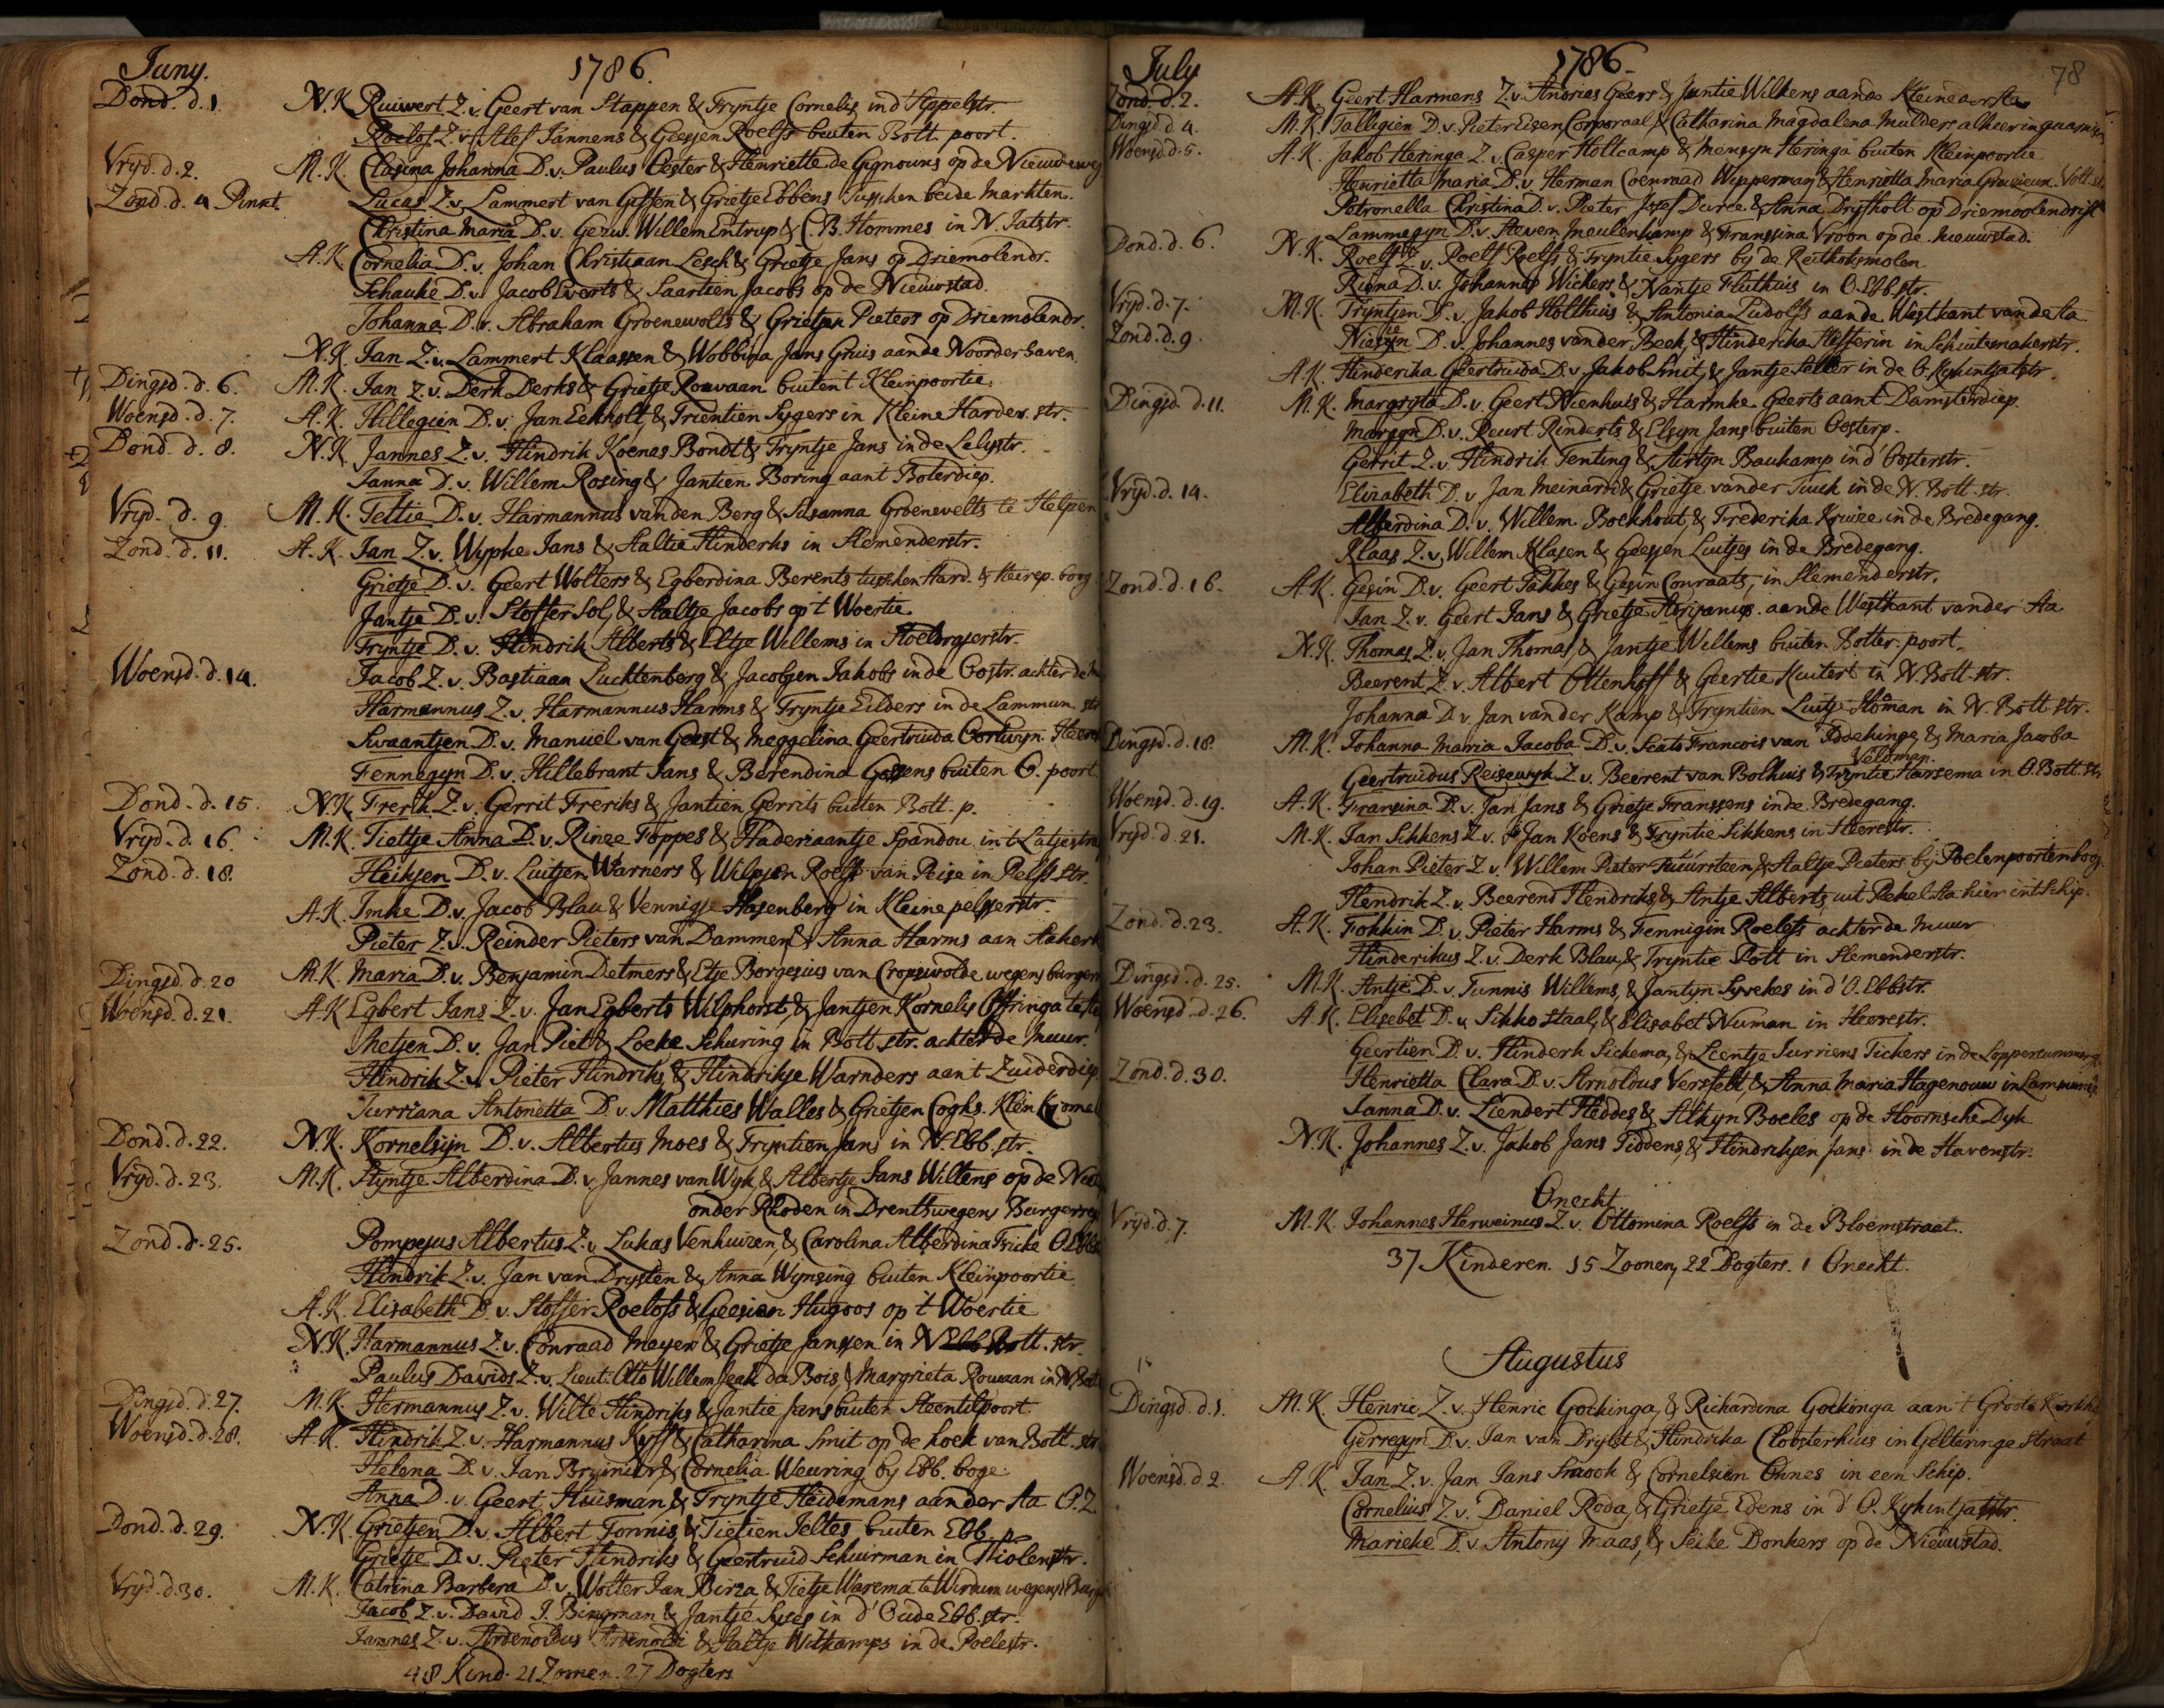 Juny. 1786.
Dond. d. 1. N.K. Ruiwert Z.v. Geert van Stappen & Tryntje Cornelis in d' Appelstr.
Roelof Z.v. Alef Jannens & Geessen Roelfs buiten Bott. poort.
Vryd. d. 2. M.K. Clasina Johanna D.v. Paulus Oester & Henriette de Gignoux op de Nieuweweg
Zond. d. 4 Pinxt. Lucas Z.v. Lammert van Giffen & Grietje Ebbens tusschen beide Markten.
Christina Maria D.v. Gerw. Willem Entrup & C.B. Hommes in N. Jatstr.
A.K. Cornelia D.v. Johan Christiaan Lesch & Grietje Jans op Driemolendr.
Schauke D.v. Jacob Everts & Saartien Jacobs op de Nieuwstad.
Johanna D.v. Abraham Groenewolts & Grietjen Pieters op Driemolendr.
N.K. Jan Z.v. Lammert Klaassen & Wobbina Jans Gruis aande Noorderhaven.
Dingsd. d. 6. M.K. Jan Z.v. Derk Derks & Grietje Rouvaan buiten t Kleinpoortie.
Woensd. d. 7. A.K. Hillegien D.v. Jan Eekholt & Trientien Sygers in Kleine Harder. str.
Dond. d. 8. N.K. Jannes Z.v. Hindrik Koenas Bondt & Tryntje Jans in de Lelystr.
Janna D.v. Willem Rosing & Jantien Boring aant Boterdiep.
Vryd. d. 9. M.K. Tettie D.v. Harmannus van den Berg & Susanna Groenevelts te Helpen
Zond. d. 11. A.K. Jan Z.v. Wypke Jans & Aaltie Hinderks in Slemenderstr.
Grietje D.v. Geert Wolters & Egberdina Berents tusschen Hard. & Heirep. boog
Jantje D.v. Stoffer Sol, & Aaltje Jacobs op 't Woertie.
Tryntje D.v. Hindrik Alberts & Eltje Willems in Stoeldrajerstr.
Woensd. d. 14. Jacob Z.v. Bastiaan Luchtenberg & Jacobjen Jakobs inde Oostr. achter de
Harmannus Z.v. Harmannus Harms & Tryntje Eilders in de Lammun. str
Swaantjen D.v. Manuel van Geest & Meggelina Geertruida Oortwyn.
Fennegyn D.v. Hillebrant Jans & Berendina Gossens buiten O. poort.
Dond. d. 15. N.K. Frerik Z.v. Gerrit Freriks & Jantien Gerrits buiten Bott. p.
Vryd. d. 16. M.K. Tiettje Anna D.v. Rinze Foppes & Haderiaantje Spandou
Zond. d. 18. Heiksen D.v. Luitjen Warners & Wilpjen Roelfs van Peise in Pelss str.
A.K. Imke D.v. Jacob Blau & Vennigje Hasenberg in Kleine pelsserstr.
Pieter Z.v. Reinder Pieters van Dammen & Anna Harms aan
Dingsd. d. 20 M.K. Maria D.v. Benjamin Detmers & Etje Borgesius van Cropswolde, wegens
Woensd. d. 21. A.K. Egbert Jans Z.v. Jan Egberts Wilphorst, & Jantjen Kornelis Offringa
Metjen D.v. Jan Piet & Loeke Schuring in Bott. str. achter de Muur.
Hindrik Z.v. Pieter Hindriks, & Hindrikje Warnders aan t Zuiderdiep
Jurriana Antonetta D.v. Matthies Walles & Grietjen Coghs. Klein
Dond. d. 22. N.K. Kornelsijn D.v. Albertus Moes & Tryntien Jans in N. Ebb. str.
Vryd. d. 23. M.K. Styntje Alberdina D.v. Jannes van Wyk, & Albertje Jans Willens op de
onder Rhoden in Drenth wegens Burgerre
Zond. d. 25. Pompejus Albertus Z.v. Lukas Venhuizen, & Carolina Alberdina Fricke
Hindrik Z.v. Jan van Drysten & Anna Wynsing buiten Kleinpoortie.
A.K. Elisabeth D.v. Stoffer Roelofs & Geesien Hugoos op 't Woertie
N.K. Harmannus Z.v. Conraad Meyer & Grietje Janssen in N Bott. str.
Paulus Davids Z.v. Lieut. Otto Willem Jean du Bois, & Margrieta Rouwaan in
Dingsd. d. 27. M.K. Hermannus Z.v. Wilte Hindriks & Jantie Jans buiten Steentilpoort
Woensd. d. 28. A.K. Hindrik Z.v. Harmannus Ryff & Catharina Smit op de hoek van Bott. str
Helena D.v. Jan Bruinier & Cornelia Weuring by Ebb. boge
Anna D.v. Geert Huisman, & Tryntje Heidemans aan der Aa O.Z.
Dond. d. 29. N.K. Grietjen D.v. Albert Tonnis, & Tietien Jeltes buiten Ebb. p.
Grietje D.v. Pieter Hindriks & Geertruid Schuirman in Violenstr.
Vryd. d. 30. M.K. Catrina Barbera D.v. Wolter Jan Birza & Tietje Warema te Wirdum wegens
Jacob Z.v. David J. Bingman & Jantje Syses in d' Oude Ebb. str.
Jannes Z.v. Ardenoldus Ardenoldi & Aaltje Witkamps in de Poelestr.
48 Kind. 21 Zoonen. 27 Dogters.
July 1786. 78
Zond. d. 2. A.K. Geert Harmens Z.v. Andries Geers & Jantie Wilkens aande Kleine der Aa
Dingsd. d. 4. M.K. Tallegien D.v. Pieter Eisen Corporaal, & Catharina Magdalena Mulders alhier in guarnis
Woensd. d. 5. A.K. Jakob Heringa Z.v. Casper Holtcamp & Mensyn Heringa buiten Kleinpoortie
Henrietta Maria D.v. Herman Coenraad Wipperman, & Henrietta Maria
Petronella Christina D.v. Pieter Josef Duree & Anna Dryfholt op Driemoolendrift
Lammegyn D.v. Steven Meulenkamp & Franssina Vroon op de Nieuwstad.
Dond. d. 6. N.K. Roelf Z.v. Roelf Roelfs & Tryntie Sygers by de
Riena D.v. Johannes Wickers & Nantje Fluthuis in O. Ebb. str.
Vryd. d. 7. M.K. Tryntjen D.v. Jakob Holthuis & Antonia Ludolfs aande Westkant vande Aa
Zond. d. 9. Niesyn D.v. Johannes van der Beek, & Hinderika Hesterin in Schuitemakerstr.
A.K. Hinderika Geertruida D.v. Jakob Smit, & Jantje Seller in de O. Kykintjatstr
Dingsd. d. 11. M.K. Margryta D.v. Geert Nienhuis & Harmke Geerts aant Damsterdiep.
Margyn D.v. Reurt Rinderts & Elsyn Jans buiten Oosterp.
Gerrit Z.v. Hindrik Tenting & Airtyn Baukamp in d' Oosterstr.
Vryd. d. 14. Elizabeth D.v. Jan Meinardi & Grietje vander Tuuk in de N. Bott. str.
Alberdina D.v. Willem Boekhout, & Frederika Kruize in de Bredegang.
Klaas Z.v. Willem Klasen & Geessen Luitjes in de Bredegang.
Zond. d. 16. A.K. Gesin D.v. Geert Takkes & Gesin Conraats, in Slemenderstr.
Jan Z.v. Geert Jans & Grietje Abrijanus aande Westkant vander Aa
N.K. Thomas Z.v. Jan Thomas & Jantje Willems buiten Botter. poort.
Beerent Z.v. Albert Ottenhoff & Geertie Kuitert in N. Bott. str.
Johanna D.v. Jan van der Kamp & Tryntien Luitje Homan in N. Bott. str.
Dingsd. d. 18. M.K. Johanna Maria Jacoba D.v. Scato Francois van Iddekinge & Maria Jacoba
Veldman.
Geertruidus Reisewyk Z.v. Beerent van Bolhuis & Tryntie Harsema in O. Bott. str
Woensd. d. 19. A.K. Fransina D.v. Jan Jans & Grietje Franssens inde Bredegang.
Vryd. d. 21. M.K. Jan Sikkens Z.v. Jan Koens & Tryntie Sikkens in Heerestr.
Johan Pieter Z.v. Willem Pieter & Aaltje Pieters by Poelenpoortenboog.
Hendrik Z.v. Beerend Hendriks, & Antje Alberts, uit Pekel Aa hier int Schip.
Zond. d. 23. A.K. Fokkin D.v. Pieter Harms & Fennigin Roelofs achter de Muur
Hinderikus Z.v. Derk Blau, & Tryntie Bott in Slemenderstr.
Dingsd. d. 25. M.K. Antje D.v. Tunnis Willems, & Jantyn Syvekes in d' O. Ebbstr.
Woensd. d. 26. A.K. Elisebet D.v. Sikko Staal, & Elisabet Numan in Heerestr.
Geertien D.v. Hinderk Sickema, & Leentje Jurriens Tickers in de
Zond. d. 30. Henrietta Clara D.v. Arnoldus Versfelt, & Anna Maria Hagenouw in
Janna D.v. Liendert Heddes & Alkyn Boeles op de Hoornsche Dyk
N.K. Johannes Z.v. Jakob Jans Tiddens, & Hindrikjen Jans in de Havenstr.
Onecht
Vryd. d. 7. M.K. Johannes Herweinus Z.v. Ottomina Roelfs in de Bloemstraat.
37 Kinderen. 15 Zoonen, 22 Dogters. 1 Onecht.
Augustus
Dingsd. d. 1. M.K. Henric Z.v. Henric Gockinga, & Richardina Gockinga aan t Groote
Gerregyn D.v. Jan van Drylst & Hindrika Cloosterhuis in Gelkeringe Straat
Woensd. d. 2. A.K. Jan Z.v. Jan Jans Snook & Cornelsien Onnes in een Schip.
Cornelius Z.v. Daniel Roda, & Grietje Edens in d' O. Kykintjatstr.
Marieke D.v. Antony Maas, & Seike Donkers op de Nieuwstad.